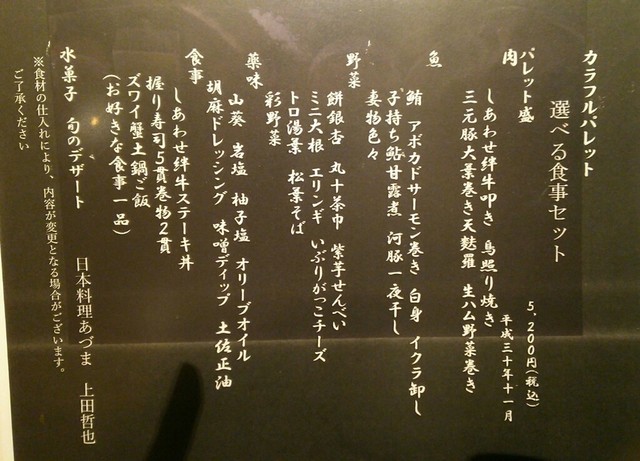 カラフルパレット
選べる食事セット
5,200円(税込)
平成三十年十一月
パレット盛
肉
しあわせ絆牛叩き 鳥照り焼き
三元豚大葉巻き天麩羅 生ハム野菜巻き
魚
鮪 アボカドサーモン巻き 白身 イクラ卸し
子持ち鮎甘露煮 河豚一夜干し
妻物色々
野菜
餅銀杏 丸十茶巾 紫芋せんべい
ミニ大根 エリンギ いぶりがっこチーズ
トロ湯葉 松葉そば
彩野菜
薬味
山葵 岩塩 柚子塩 オリーブオイル
胡麻ドレッシング 味噌ディップ 土佐正油
食事
しあわせ絆牛ステーキ丼
握り寿司5貫巻物2貫
ズワイ蟹土鍋ご飯
(お好きな食事一品)
水菓子 旬のデザート
日本料理あづま 上田哲也
※食材の仕入れにより、内容が変更となる場合がございます。
ご了承ください